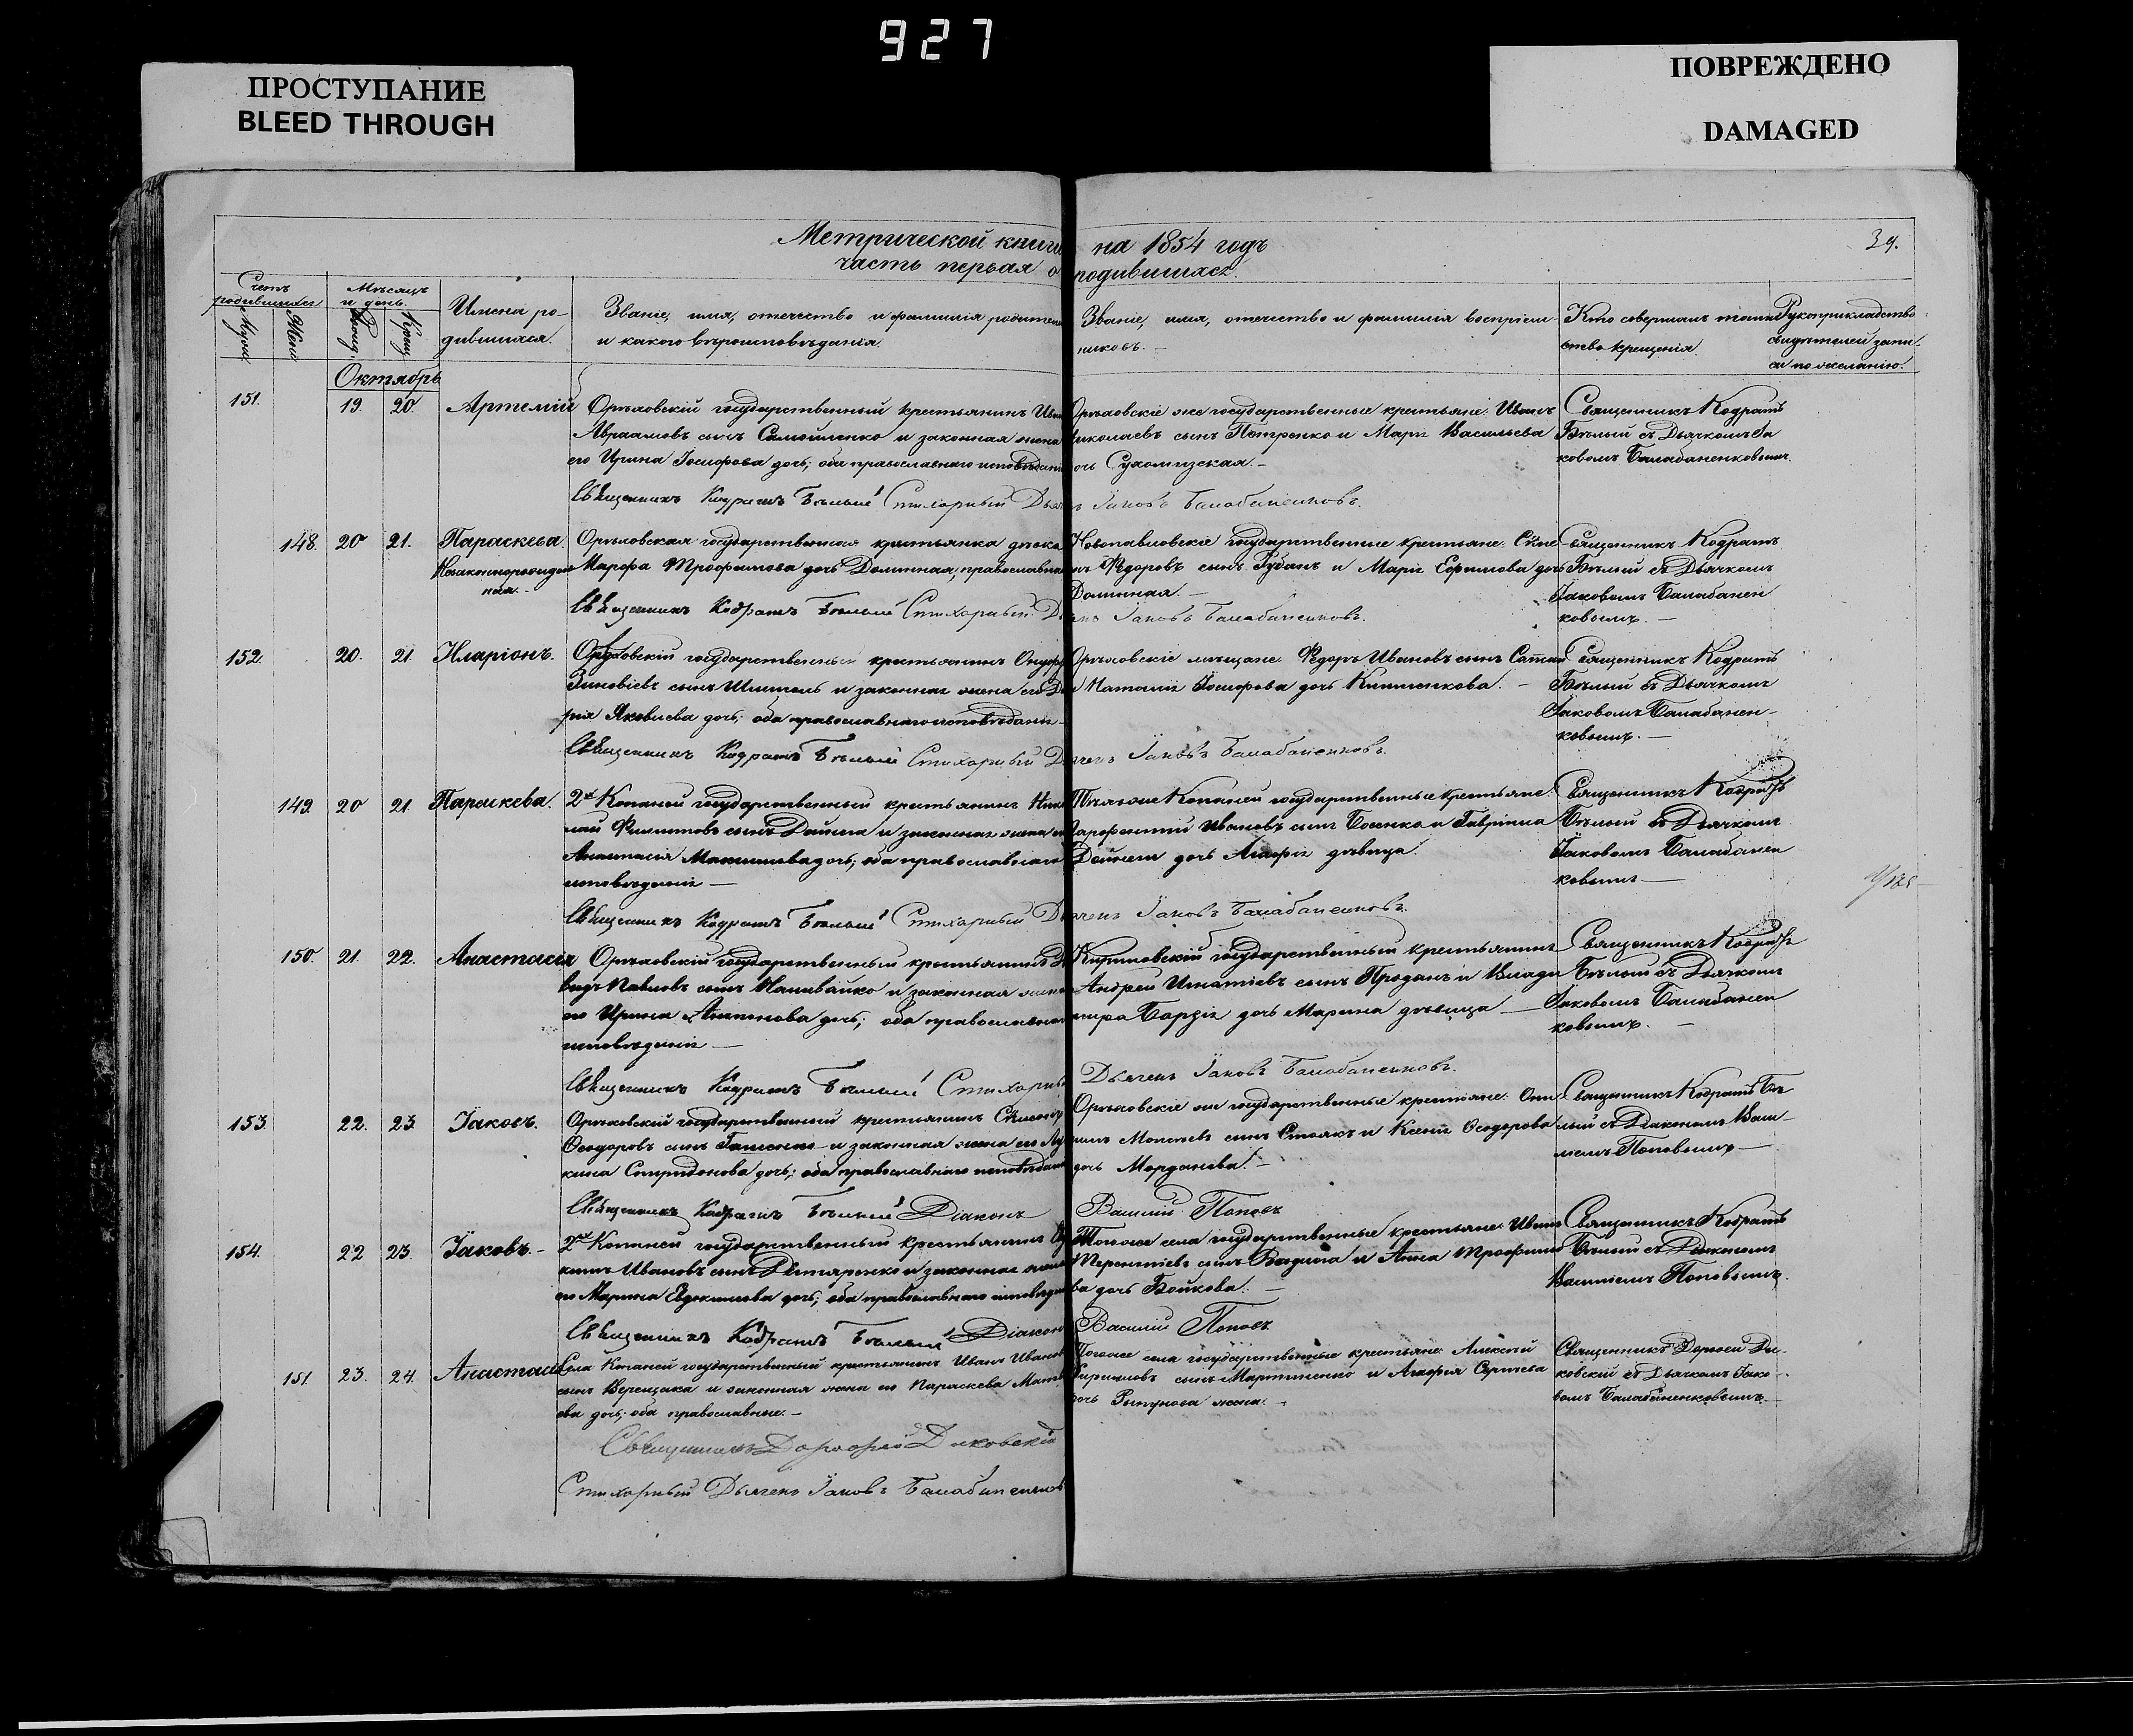 927
ПРОСТУПАНИЕ
BLEED THROUGH
ПОВРЕЖДЕНО
DAMAGED
Метрической книги на 1854 годъ
39.
часть первая о родившихся.
Счетъ родившихся
Мѣсяцъ и день.
Имена родившихся.
Званіе, имя, отечество и фамилія родителей
и какого вѣроисповѣданія.
Званіе, имя, отечество и фамилія воспріем-
никовъ.
Кто совершалъ таин-
ство крещенія.
Рукоприкладство
свидѣтелей запи-
си по желанію.
Октябрь
151. 19. 20. Артемій
Орѣховскій государственный крестьянинъ Иванъ
Авраамовъ сынъ Самойленко и законная жена
его Ирина Іосифова дочь; оба православнаго исповѣданія
Орѣховскіе же государственные крестьяне: Иванъ
Николаевъ сынъ Петренко и Марія Васильева
дочь
Священникъ Кодратъ
Бѣлый съ Дьячкомъ Іа
ковомъ Балабаненковымъ.
Священникъ Кодратъ Бѣлый Стихарный Дьячекъ Іаковъ Балабаненковъ.
148. 20 21. Параскева.
Незаконнорожден
ная.
Орѣховская государственная крестьянка дѣвка
Марфа Трофимова дочь Долинная, православная
Новопавловскіе государственные крестьяне:
Ѳедоровъ сынъ Губанъ и Марія Ефимова дочь
Долинная.
Священникъ Кодратъ
Бѣлый съ Дьячкомъ
Іаковомъ Балабанен
ковымъ.
Священникъ Кодратъ Бѣлый Стихарный Дьячекъ Іаковъ Балабаненковъ.
152. 20. 21. Иларіонъ.
Орѣховскій государственный крестьянинъ
Зиновіевъ сынъ и законная жена его Да
рія Яковлева дочь; оба православнаго исповѣданія
Орѣховскіе мѣщане: Ѳедоръ Ивановъ сынъ
и Наталія Іосифова дочь
Священникъ Кодратъ
Бѣлый съ Дьячкомъ
Іаковомъ Балабанен-
ковымъ.
Священникъ Кодратъ Бѣлый Стихарный Дьячекъ Іаковъ Балабаненковъ.
149. 20 21. Параскева.
2й Копаней государственный крестьянинъ Нико
лай Филиповъ сынъ и законная жена его
Анастасія Максимова дочь; оба православнаго
исповѣданія
Копаней государственные крестьяне:
Ивановъ сынъ и Гавріила
дочь Агафія дѣвица.
Священникъ Кодратъ
Бѣлый съ Дьячкомъ
Іаковомъ Балабанен
ковымъ
Священникъ Кодратъ Бѣлый Стихарный Дьячекъ Іаковъ Балабаненковъ.
150. 21. 22. Анастасія
Орѣховскій государственный крестьянинъ Да
видъ Павловъ сынъ Наливайко и законная жена
его Ирина дочь; оба православнаго
исповѣданія
государственный крестьянинъ
Андрей Игнатіевъ сынъ Проданъ и Влади
мира дочь Марина дѣвица
Священникъ Кодратъ
Бѣлый съ Дьячкомъ
Іаковомъ Балабанен
ковымъ.
Священникъ Кодратъ Бѣлый Стихарный Дьячекъ Іаковъ Балабаненковъ.
153. 22. 23. Іаковъ.
Орѣховскій государственный крестьянинъ
Ѳеодоровъ сынъ и законная жена его Лу
кина Спиридонова дочь; оба православнаго исповѣданія
Орѣховскіе же государственные крестьяне:
сынъ и Ксенія Ѳеодорова
дочь
Священникъ Кодратъ Бѣ
лый съ Діакономъ Васи-
ліемъ Поповымъ
Священникъ Кодратъ Бѣлый Діаконъ Василій Поповъ
154. 22 23. Іаковъ.
2й Копаней государственный крестьянинъ
Ивановъ сынъ и законная жена
его Марина Евдокимова дочь; оба православнаго исповѣданія
Тогоже села государственные крестьяне: Иванъ
Терентіевъ сынъ и Анна Трофимо
ва дочь Бойкова.
Священникъ Кодратъ
Бѣлый съ Діакономъ
Василіемъ Поповымъ.
Священникъ Кодратъ Бѣлый Діаконъ Василій Поповъ
151 23. 24. Анастасія
Села Копаней государственный крестьянинъ Иванъ Ивановъ
сынъ Верещака и законная жена его Параскева Матвѣ
ева дочь; оба православные.
Тогоже села государственные крестьяне: Алексѣй
Кириловъ сынъ Мартыненко и Агафія Сергѣева
дочь жена.
Священникъ Дорофей Ди-
ковскій съ Дьячкомъ Іако-
вомъ Балабаненковымъ.
Священникъ Дорофей Диковскій
Стихарный Дьячекъ Іаковъ Балабаненковъ